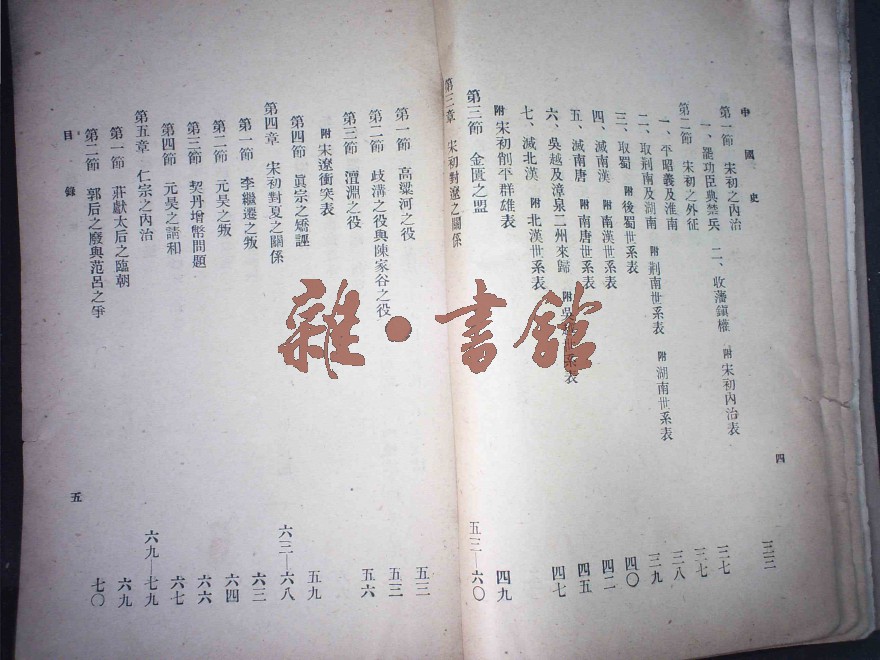 中國史
第一節 宋初之內治 三三
一、罷功臣典禁兵 二、收藩鎭權 附宋初內治表 三七
第二節 宋初之外征 三七
一、平昭義及淮南 三八
二、取荆南及湖南 附荆南世系表 附湖南世系表 三九
三、取蜀 附後蜀世系表 四〇
四、滅南漢 附南漢世系表 四二
五、滅南唐 附南唐世系表 四五
六、吳越及漳泉二州來歸 附吳越世系表 四七
七、滅北漢 附北漢世系表
附宋初削平群雄表 四九
第三節 金匱之盟
第三章 宋初對遼之關係 五三—六〇
四
第一節 高粱河之役 五三
第二節 歧溝之役與陳家谷之役 五三
第三節 澶淵之役 五六
附宋遼衝突表
第四節 眞宗之矯誣 五九
第四章 宋初對夏之關係 六三—六八
第一節 李繼遷之叛 六三
第二節 元昊之叛 六四
第三節 契丹增幣問題 六六
第四節 元昊之請和 六七
第五章 仁宗之內治 六九—七九
第一節 莊獻太后之臨朝 六九
第二節 郭后之廢與范呂之爭 七〇
目錄
五
雜·書館